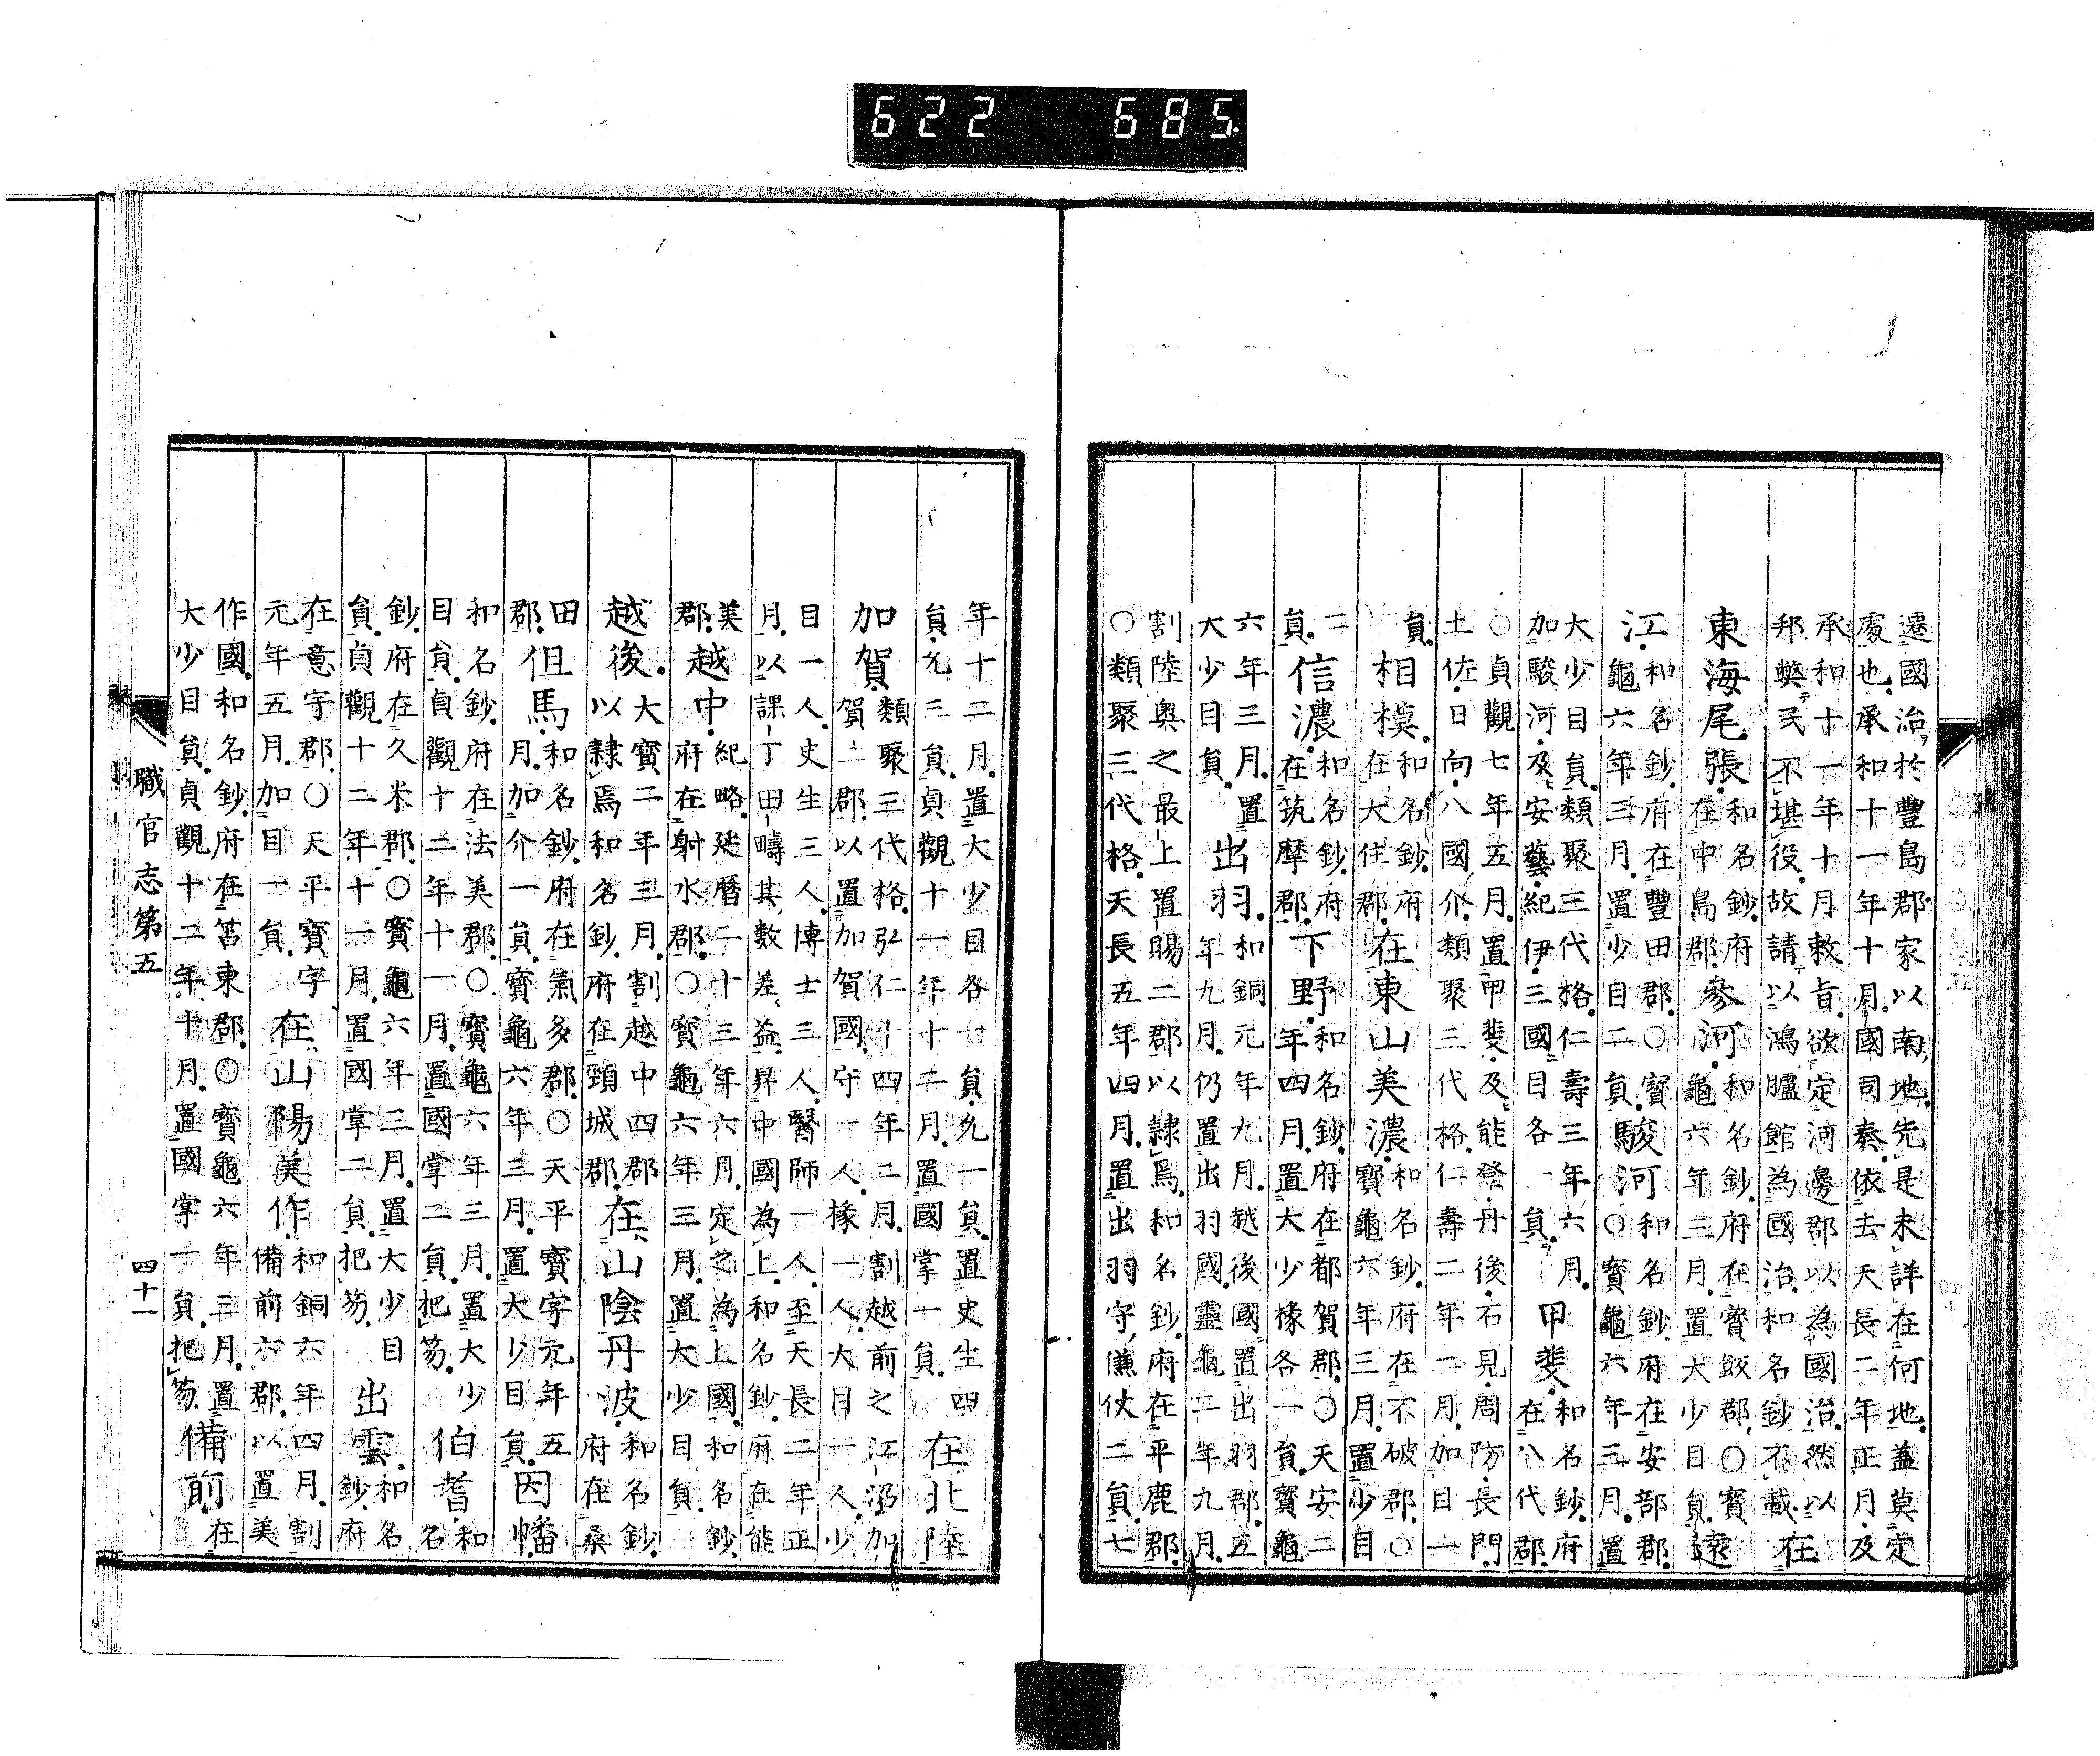 622 685
遷國治於豐島郡家以南地先是未詳在何地蓋莫定
處也承和十一年十月國司奏依去天長二年正月及
承和十一年十月敕旨欲定河邊郡以為國治然以
邦獘民不堪役故請以鴻臚館為國治和名鈔不載在
東海尾張和名鈔府在中島郡參河和名鈔府在寶飯郡○寶
龜六年三月置大少目員遠
江和名鈔府在豐田郡○寶
龜六年三月置少目二員駿河和名鈔府在安部郡
○寶龜六年三月置
大少目員類聚三代格仁壽三年六月
加駿河及安藝紀伊三國目各一員甲斐和名鈔府
在八代郡
○貞觀七年五月置甲斐及能登丹後石見周防長門
土佐日向八國介類聚三代格仁壽二年二月加目一
員相模和名鈔府
在大住郡在東山美濃和名鈔府在不破郡○
寶龜六年三月置少目
二
員信濃和名鈔府
在筑摩郡下野和名鈔府在都賀郡○天安二
年四月置大少掾各一員寶龜
六年三月置
大少目員出羽和銅元年九月越後國置出羽郡五
年九月仍置出羽國靈龜二年九月
割陸奧之最上置賜二郡以隸焉和名鈔府在平鹿郡
○類聚三代格天長五年四月置出羽守傔仗二員七
年十二月置大少目各一員允一員置史生四
員允三員貞觀十一年十二月置國掌十員在北陸
加賀類聚三代格弘仁十四年二月割越前之江沼加
賀二郡以置加賀國守一人掾一人大目一人少
目一人史生三人博士三人醫師一人至天長二年正
月以課丁田疇其數差益昇中國為上和名鈔府在能
美
郡越中紀略延曆二十三年六月定之為上國和名鈔
府在射水郡○寶龜六年三月置大少目員
越後大寶二年三月割越中四郡
以隸焉和名鈔府在頸城郡在山陰丹波和名鈔
府在桑
田
郡但馬和名鈔府在氣多郡○天平寶字元年五
月加介一員寶龜六年三月置大少目員因幡
和名鈔府在法美郡○寶龜六年三月置大少
目員貞觀十二年十一月置國掌二員把笏伯耆和
名
鈔府在久米郡○寶龜六年三月置大少目
員貞觀十二年十一月置國掌二員把笏出雲和名
鈔府
在意宇郡○天平寶字
元年五月加目一員在山陽美作和銅六年四月割
備前六郡以置美
作國和名鈔府在苫東郡○寶龜六年三月置
大少目員貞觀十二年十月置國掌一員把笏備前在
職官志第五
四十一